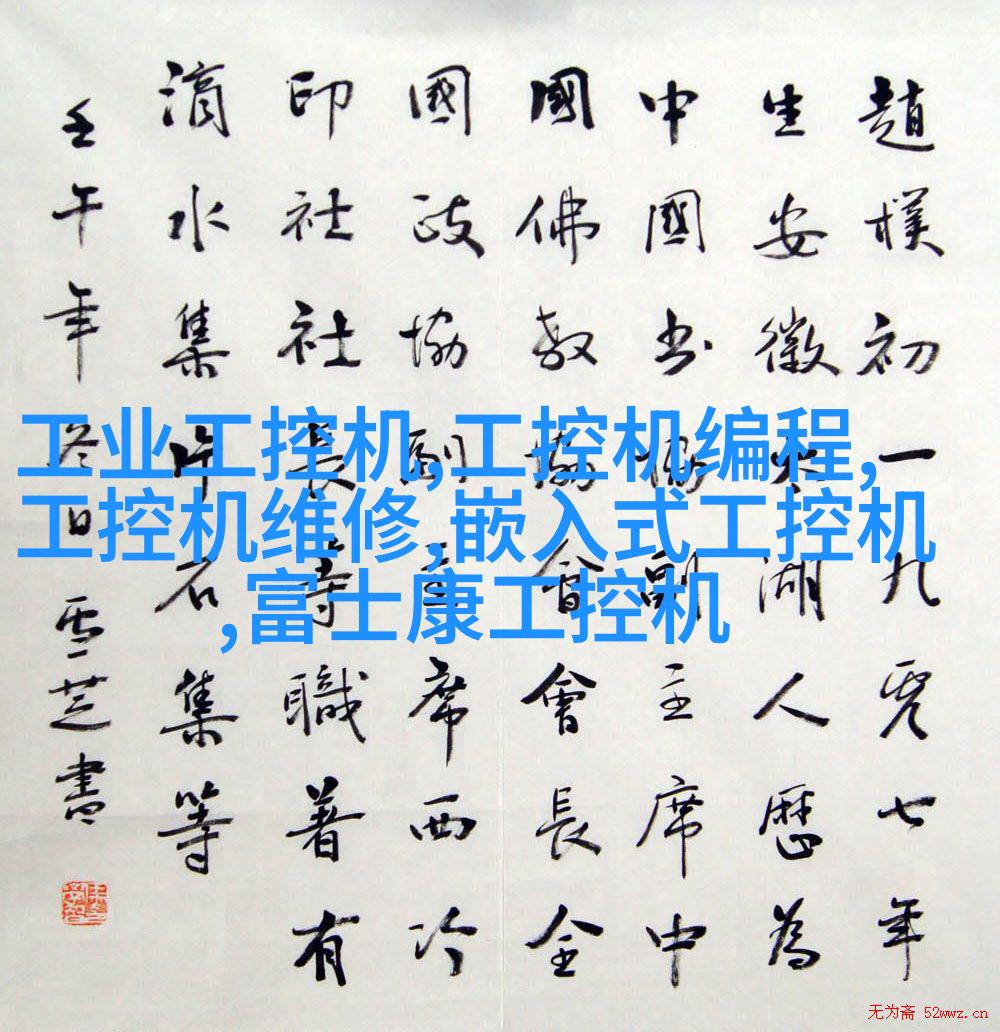 趙樸初一九零七年
生安徽太湖人歷為
中國书協副主席中
國佛教協會會長全
國政協副主席西冷
印社社長等職著有
滴水集片石集等
壬午年冬日雪芝書
工业工控机,工控机编程,
工控机维修,嵌入式工控机
,富士康工控机
无为斋 52wwz.cn